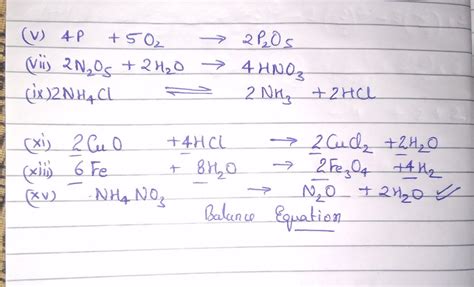 (v) 4P + 5O₂ → 2P₂O₅
(vii) 2N₂O₅ + 2H₂O → 4HNO₃
(ix) 2NH₄Cl ⇌ 2NH₃ + 2HCl
(xi) 2CuO + 4HCl → 2CuCl₂ + 2H₂O
(xiii) 6Fe + 8H₂O → 2Fe₃O₄ + 4H₂
(xv) NH₄NO₃ → N₂O + 2H₂O ✓
Balance Equation